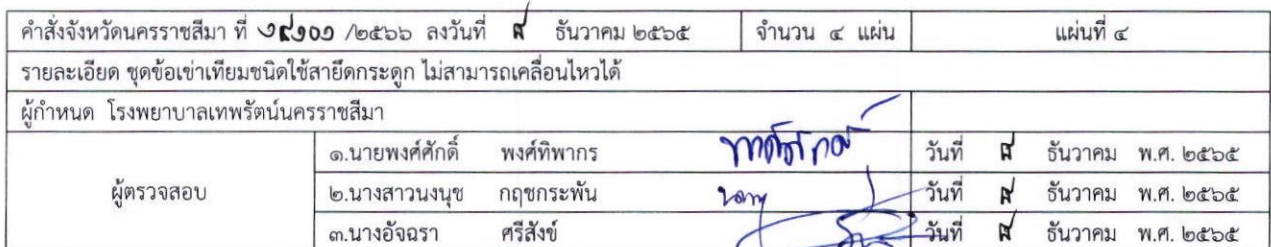 คำสั่งจังหวัดนครราชสีมา ที่ /๒๕๖๖ ลงวันที่ ธันวาคม ๒๕๖๕ จำนวน ๔ แผ่น แผ่นที่ ๔
รายละเอียด ชุดข้อเข่าเทียมชนิดใช้สายยึดกระดูก ไม่สามารถเคลื่อนไหวได้
ผู้กำหนด โรงพยาบาลเทพรัตน์นครราชสีมา
๑.นายพงศ์ศักดิ์ พงศ์ทิพากร วันที่ ธันวาคม พ.ศ. ๒๕๖๕
ผู้ตรวจสอบ ๒.นางสาวนงนุช กฤชกระพัน วันที่ ธันวาคม พ.ศ. ๒๕๖๕
๓.นางอัจฉรา ศรีสังข์ วันที่ ธันวาคม พ.ศ. ๒๕๖๕